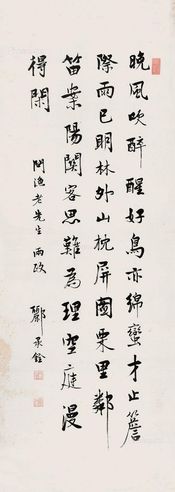 晚风吹醉醒好鸟亦绵蛮才止簷
際雨已明林外山枕屏圖栗里鄰
笛案陽関客思難為理空庭漫
得閑
問漁老先生兩政
酈承銓